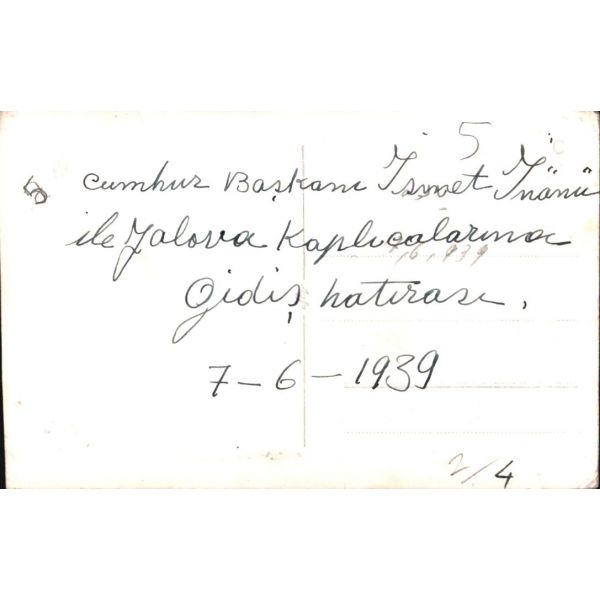 5
cumhur Başkanı İsmet İnönü
ile Yalova Kaplıcalarına
7.6.939
Gidiş hatırası.
7-6-1939
2/4